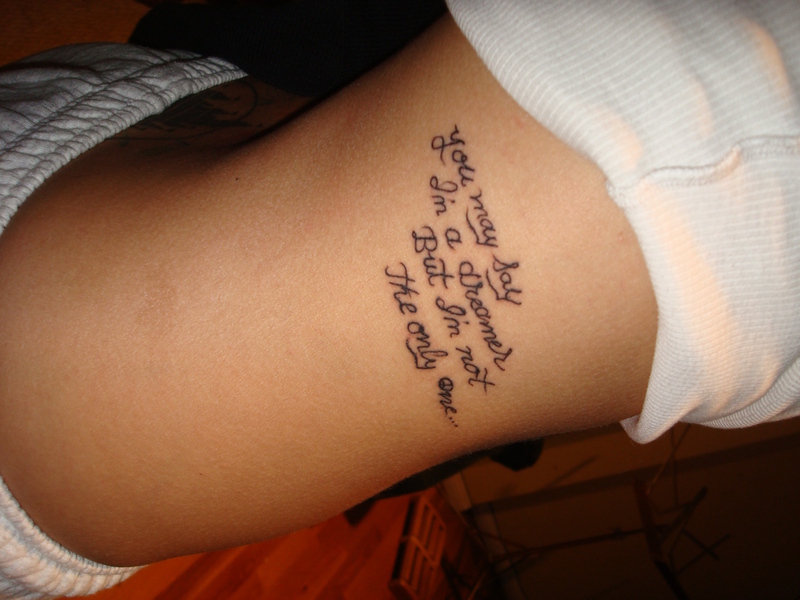 you may say
I'm a dreamer
But I'm not
The only one...